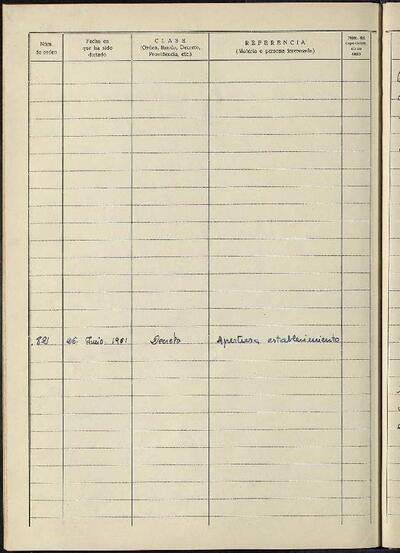 Núm. de orden
Fecha en que ha sido dictado
CLASE
(Orden, Bando, Decreto, Providencia, etc.)
REFERENCIA
(Materia o persona interesada)
Núm. del
26 Junio 1981 Decreto Apertura establecimiento